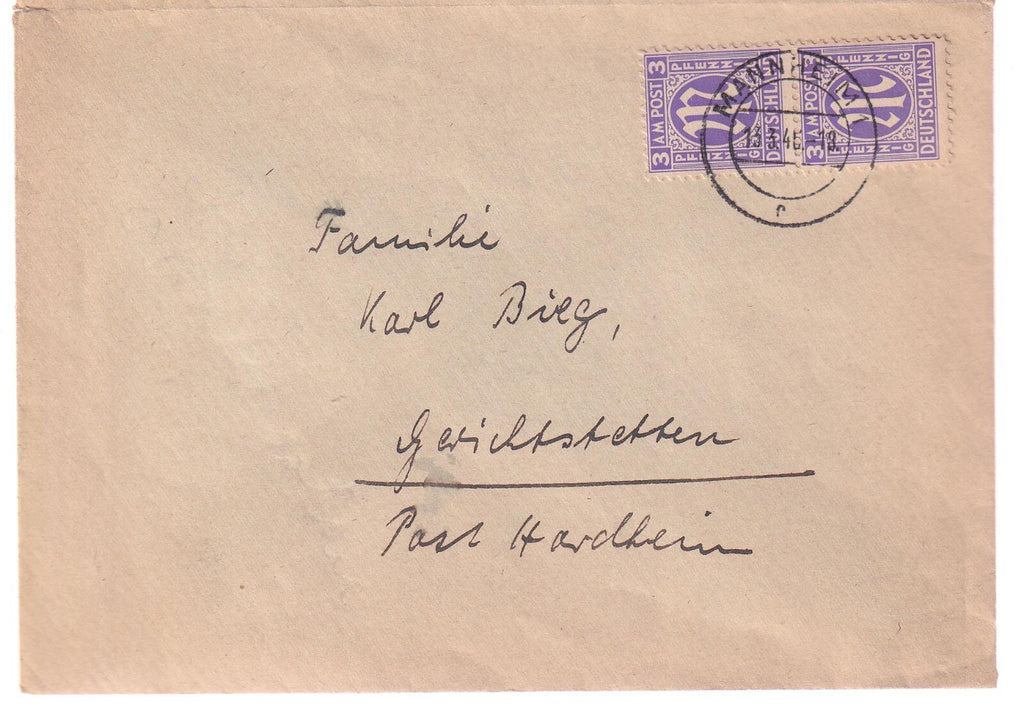 3 AM POST 3
PFENNIG
DEUTSCHLAND
3 AM POST 3
PFENNIG
DEUTSCHLAND
MANNHEIM 1
13.3.46.-18.
r
Familie
Karl Bieg,
Gerichtstetten
Post Hardheim